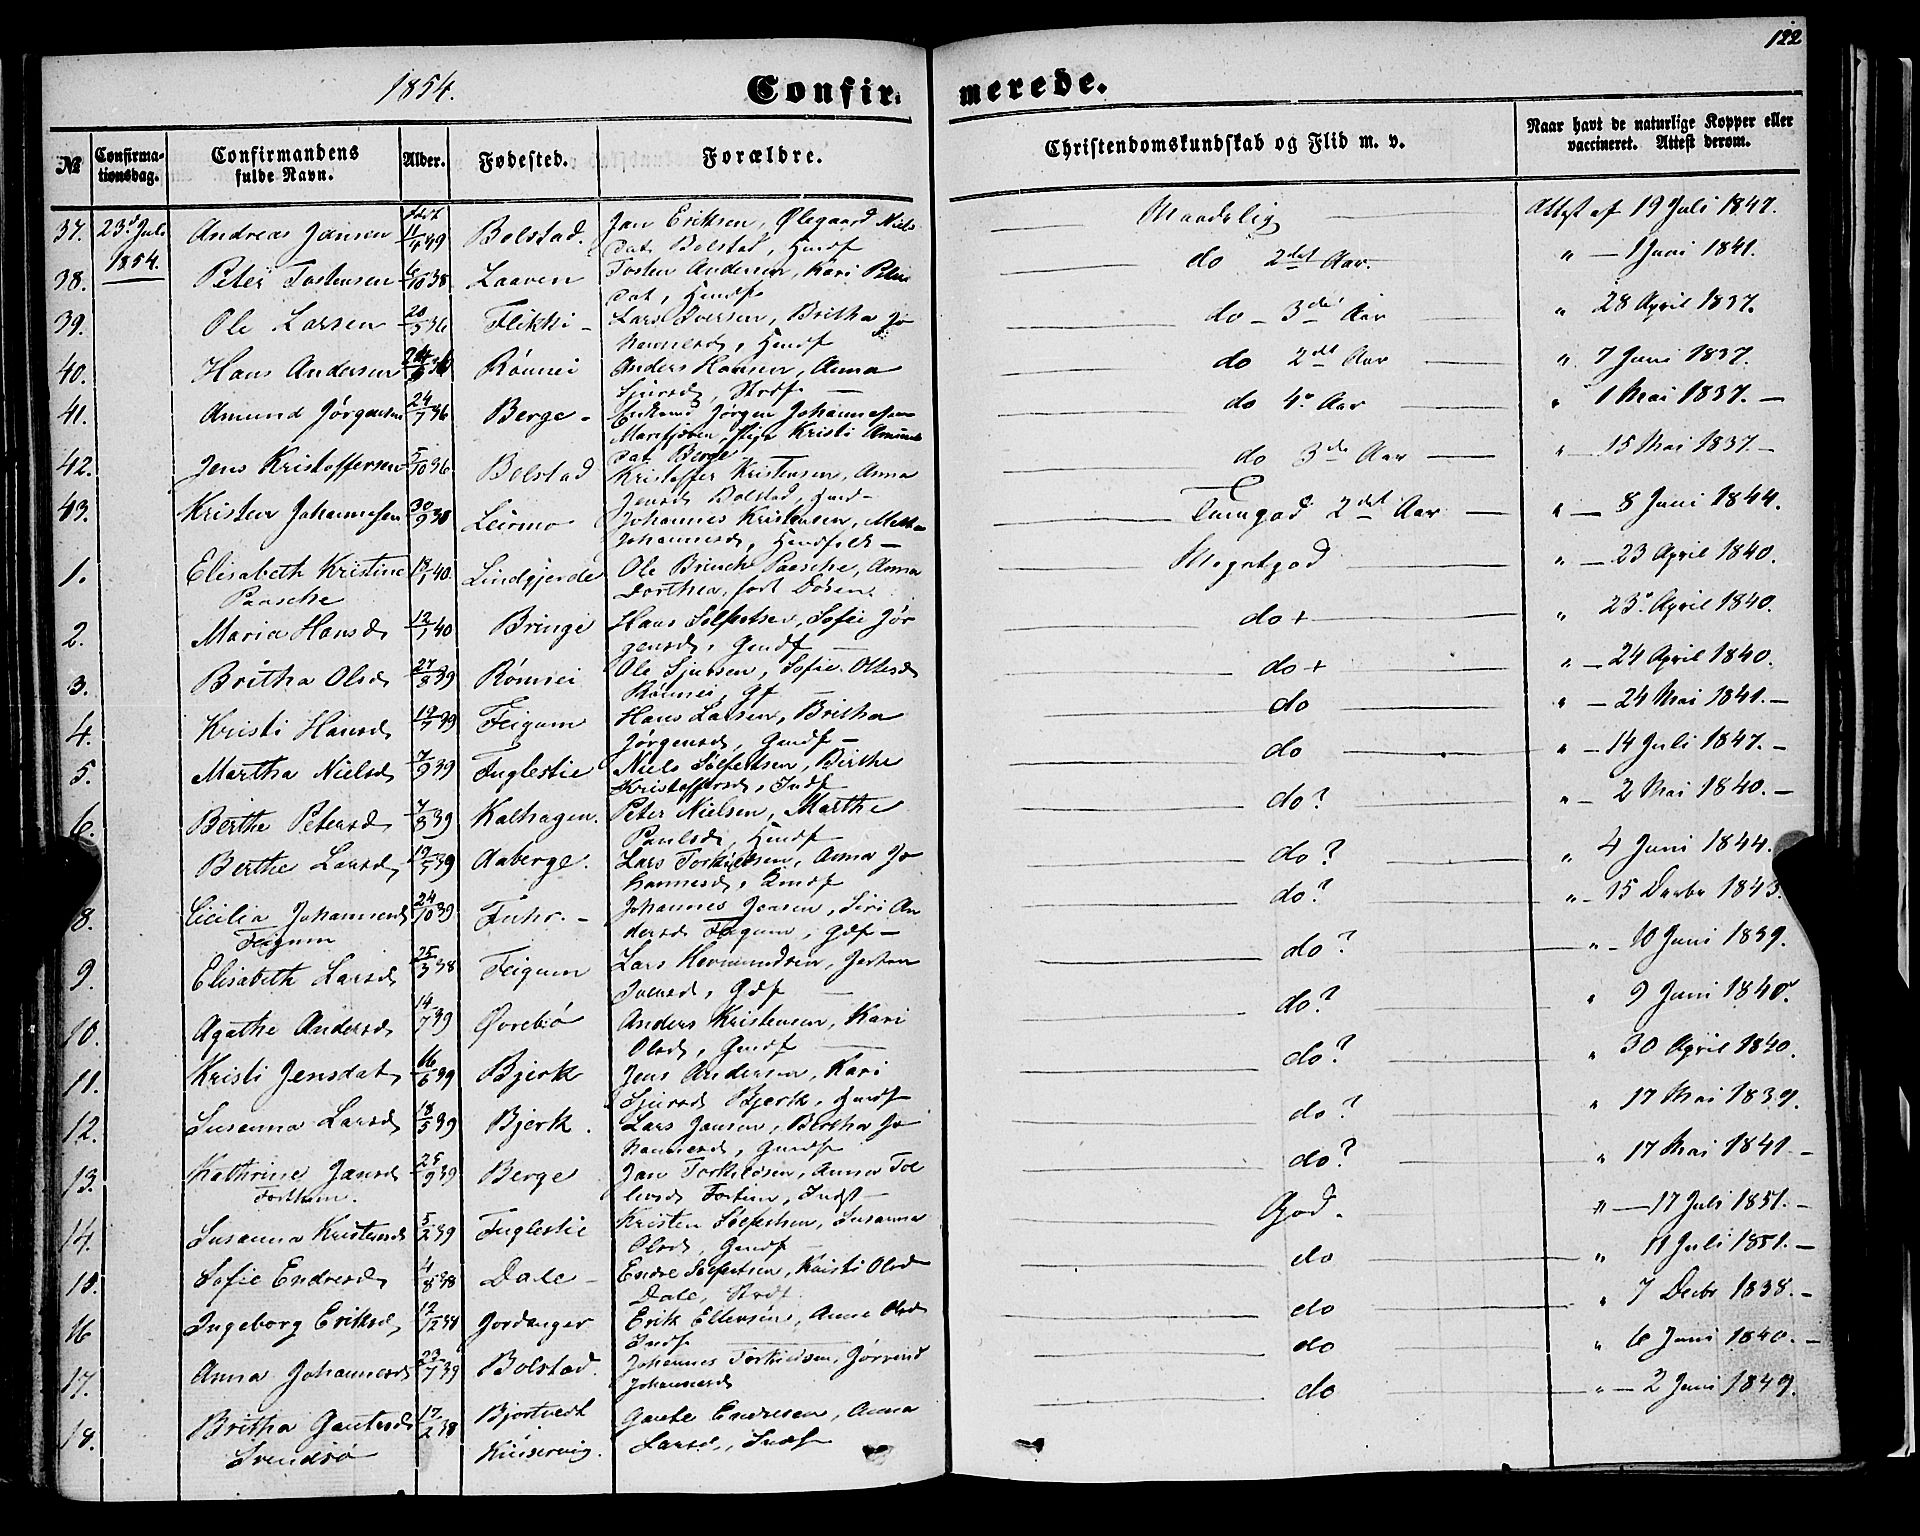 122
1854.
Confir merede.
№
Confirmationsdag.
Confirmandens fulde Navn.
Alder.
Fødested.
Forældre.
Christendomskundskab og Flid m. v.
Naar havt de naturlige Kopper eller vaccineret. Attest derom.
37. 23d Juli Andreas Jansen 39 Bolstad. Jan Eriksen, Ølegaard Niels Maadelig Attest af 19 Juli 1847.
1854. dat Bolstad, Hmdf
38. Peter Tostensen 6/10 38 Laaven Tosten Andersen, Kari Peters do 2det Aar. " — 1 Juni 1841.
dat, Hmdf
39. Ole Larsen 20/5 36 Flikki - Lars Iversen, Britha Jo do - 3de Aar " 28 April 1837.
hannesd, Hmdf
40. Hans Andersen Rønnei Anders Hansen, Anna do 2det Aar " 7 Juni 1837.
Sjursd, Strdf —
41. Amund Jørgensen 24/7 36 Berge - Enkemd Jørgen Johannesen do 4e Aar " 1 Mai 1837. —
Marifjæren, Pige Kristi Amunds
dat Berge
42. Jens Kristoffersen 5/10 36 Bolstad Kristoffer Kristensen, Anna do 3de Aar " — 15 Mai 1837. —
Jensd Bolstad, Hmd -
43. Kristen Johannesen 30/9 38 Leirmo Johannes Kristensen, Johannesd, Hmdfolk — Temgod 2det Aar — " — 8 Juni 1844.
1. Elisabeth Kristine 18/1 40. Lindgjerdet Ole Brinch Paasche, Anna Megetgod " — 23 April 1840.
Paasche Dorthea, født Døsen
2. Maria Hansd 12/1 40 Bringe Hans Solfestsen, Sofie Jør do + " 23. April 1840.
gensd, Gmdf —
3. Britha Olsd 27/8 39 Rønnei Ole Sjursen, Sofie Ottesd do + " — 24 April 1840.
Rønnei, Gf —
4. Kristi Hansd 39 Feigum Hans Larsen, Britha do " — 24 Mai 1841. —
Jørgensd, Gmdf —
5. Martha Nielsd 7/9 39 Fuglestie Niels Solfestsen, Birthe do " — 14 Juli 1847. —
Kristoffersd, Indf
6. Berthe Petersd 7/8 39 Kalhagen. Peter Nielsen, Marthe do? " — 2 Mai 1840. —
Paulsd, Hmdf
Berthe Larsd 39 Aaberge. Lars Torkildsen, Anna Jo do? " 4 Juni 1844.
hannesd,
8. Cicilia Johannesd 24/10 39 Fuhr. - Johannes Joensen, Siri An do? " — 15 Decbr 1843.
Feigum dersd Feigum, Gdf —
9. Elisabeth Larsd 25/3 38 Feigum Lars Hermundsen, do? " — 10 Juni 1839.
Iversd, Gdf —
10. Agathe Andersd 14/7 39 Øvrebø Anders Kristensen, Kari do? " 9 Juni 1840.
Olsd, Gmdf —
11. Kristi Jensdat 16/6 39 Bjerk Jens Andersen, Kari do? " 30 April 1840.
Sjursd Bjerk, Hmdf
12. Susanna Larsd 18/5 39 Bjerk. Lars Jansen, Bertha Jo do? " 17 Mai 1839.
hannesd, Gmdf
13. Kathrine Jansd 25/9 39 Berge Jan Torkildsen, Anna Tol do? " 17 Mai 1841. —
Forthun. levsd Fortun, Indst —
14. Susanna Kristensd 5/2 39 Fuglestie Kristen Solfestsen, Susanna God. " — 17 Juli 1851. —
Olsd, Gmdf —
15. Sofie Endresd 4/8 38 Dale - Endre Solfestsen, Kristi Olsd do " 11 Juli 1851. —
Dale, Strdf
16 Ingeborg Eriksd 12/2 38 Jordanger Erik Ellensen, Anne Olsd do " 7 Decbr 1838. —
Indf
17. Anna Johannesd 23/7 39 Bolstad. Johannes Torkildsen, Jørend do " 6 Juni 1840. —
Johannesd
18. Britha Gautesd 17/2 38 Bjortvedt Gaute Endresen, Anna do " — 2 Juni 1849.
Svendsø Larsd, Indf